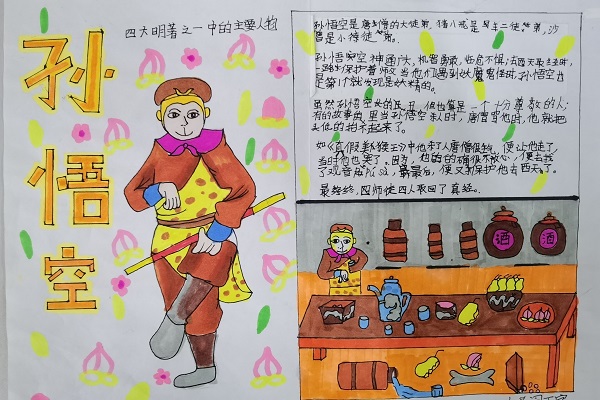 孙悟空
四大明著之一中的主要人物
孙悟空是唐僧的大徒弟,猪八戒是是二徒弟,沙
僧是小徒弟。
孙悟空神通广大,机智勇敢,
一路保护着师父,当他们遇到妖魔鬼怪时,孙悟空也
是第一个就发现是妖精的。
虽然孙悟空 但他算是一个十分尊敬的人,
有的故事 里当孙悟空 人时,唐僧骂他时,他就把
头低的抬不起来了。
如《真假美猴王》中他 了人唐僧很 便让他走了,
当时他也哭了。因为,他的的确很不放心,便去找
了观音 最后,便又 保护他去西天了。
最终终,四师徒四人取回了真经。
酒
酒